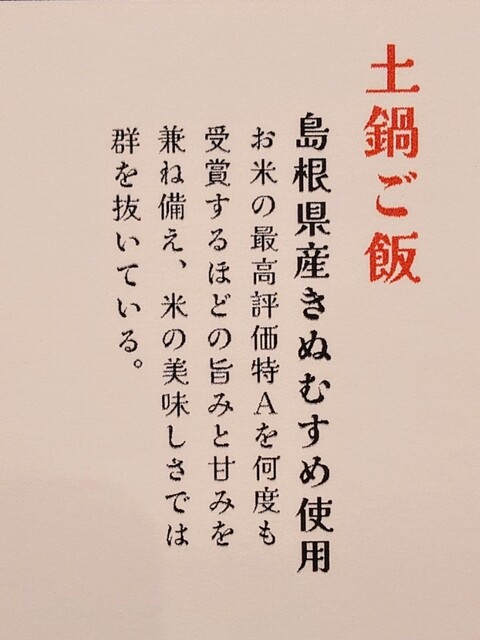 土鍋ご飯
島根県産きぬむすめ使用
お米の最高評価特Aを何度も
受賞するほどの旨みと甘みを
兼ね備え、米の美味しさでは
群を抜いている。